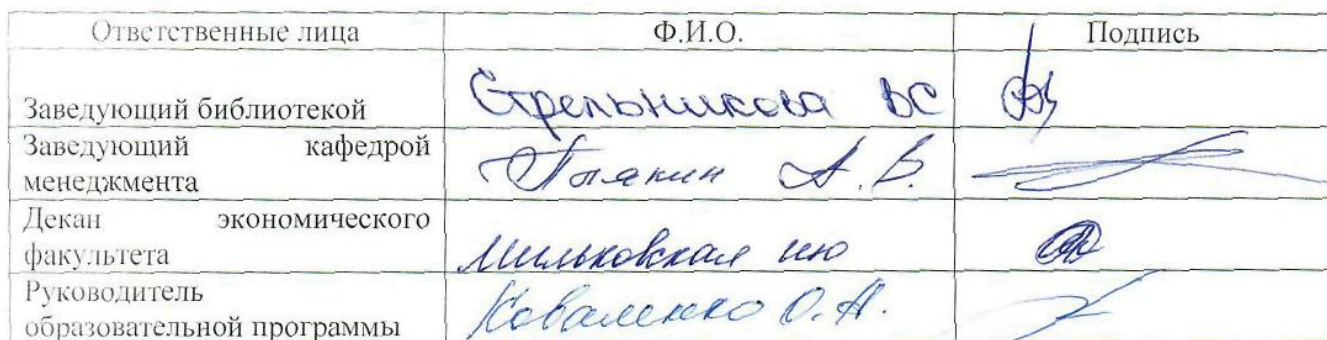 Ответственные лица Ф.И.О. Подпись
Заведующий библиотекой Стрельникова ВС
Заведующий кафедрой
менеджмента А.В.
Декан экономического
факультета Мильковская ию
Руководитель
образовательной программы Коваленко О.А.